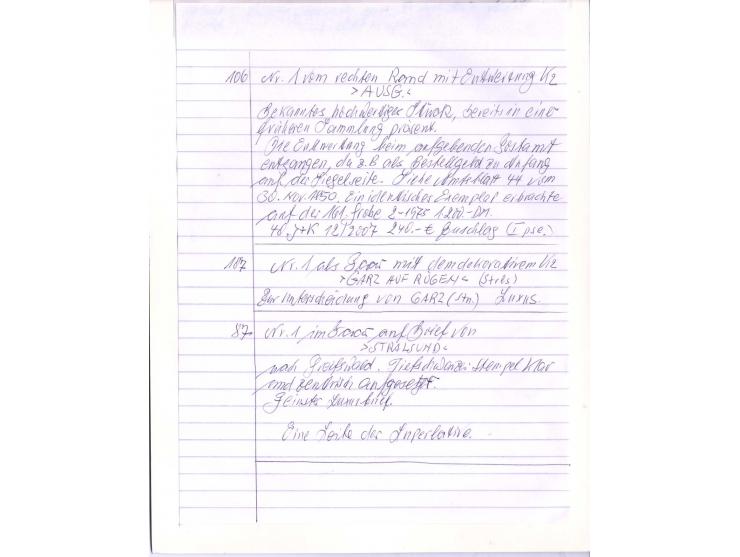 106 Nr. 1 vom rechten Rand mit Entwertung K2
>AUSG.<
Bekanntes hochwertiges Stück, bereits in eine
früheren Sammlung präsent.
Die Entwertung beim aufgebenden Postamt
entgangen, da z.B als Bestellgeld zu Anfang
auf der Siegelseite. Siehe Amtsblatt 44 vom
30. Nov. 1850. Ein identisches Exemplar erbrachte
auf der 161. 2-1975 1200.-DM.
48. J+K 12/2007 240.-€ Zuschlag (I pse.)
187 Nr. 1 als Paar mit dem dekorativem K2
>GARZ AUF RÜGEN< (Stres)
Zur Unterscheidung von GARZ (Stn.) Luxus.
87. Nr. 1 im Paar auf Brief von
>STRALSUND<
nach Greifswald. Tiefschwarzer Stempel klar
und zentrisch aufgesetzt.
Feinster Luxusbrief.
Eine Seite der Superlative.